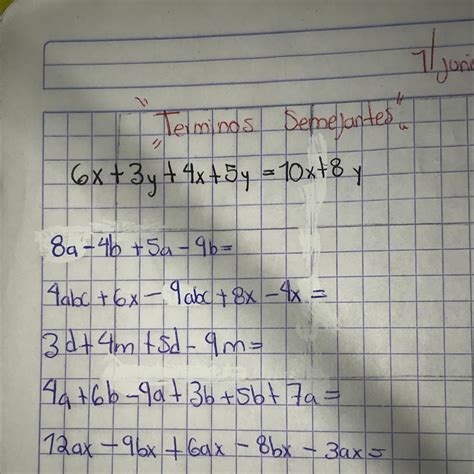 7/junio
"Terminos Semejantes"
6x+3y+4x+5y=10x+8y
8a-4b+5a-9b=
4abc+6x-9abc+8x-4x=
3d+4m+5d-9m=
4a+6b-9a+3b+5b+7a=
12ax-9bx+6ax-8bx-3ax=